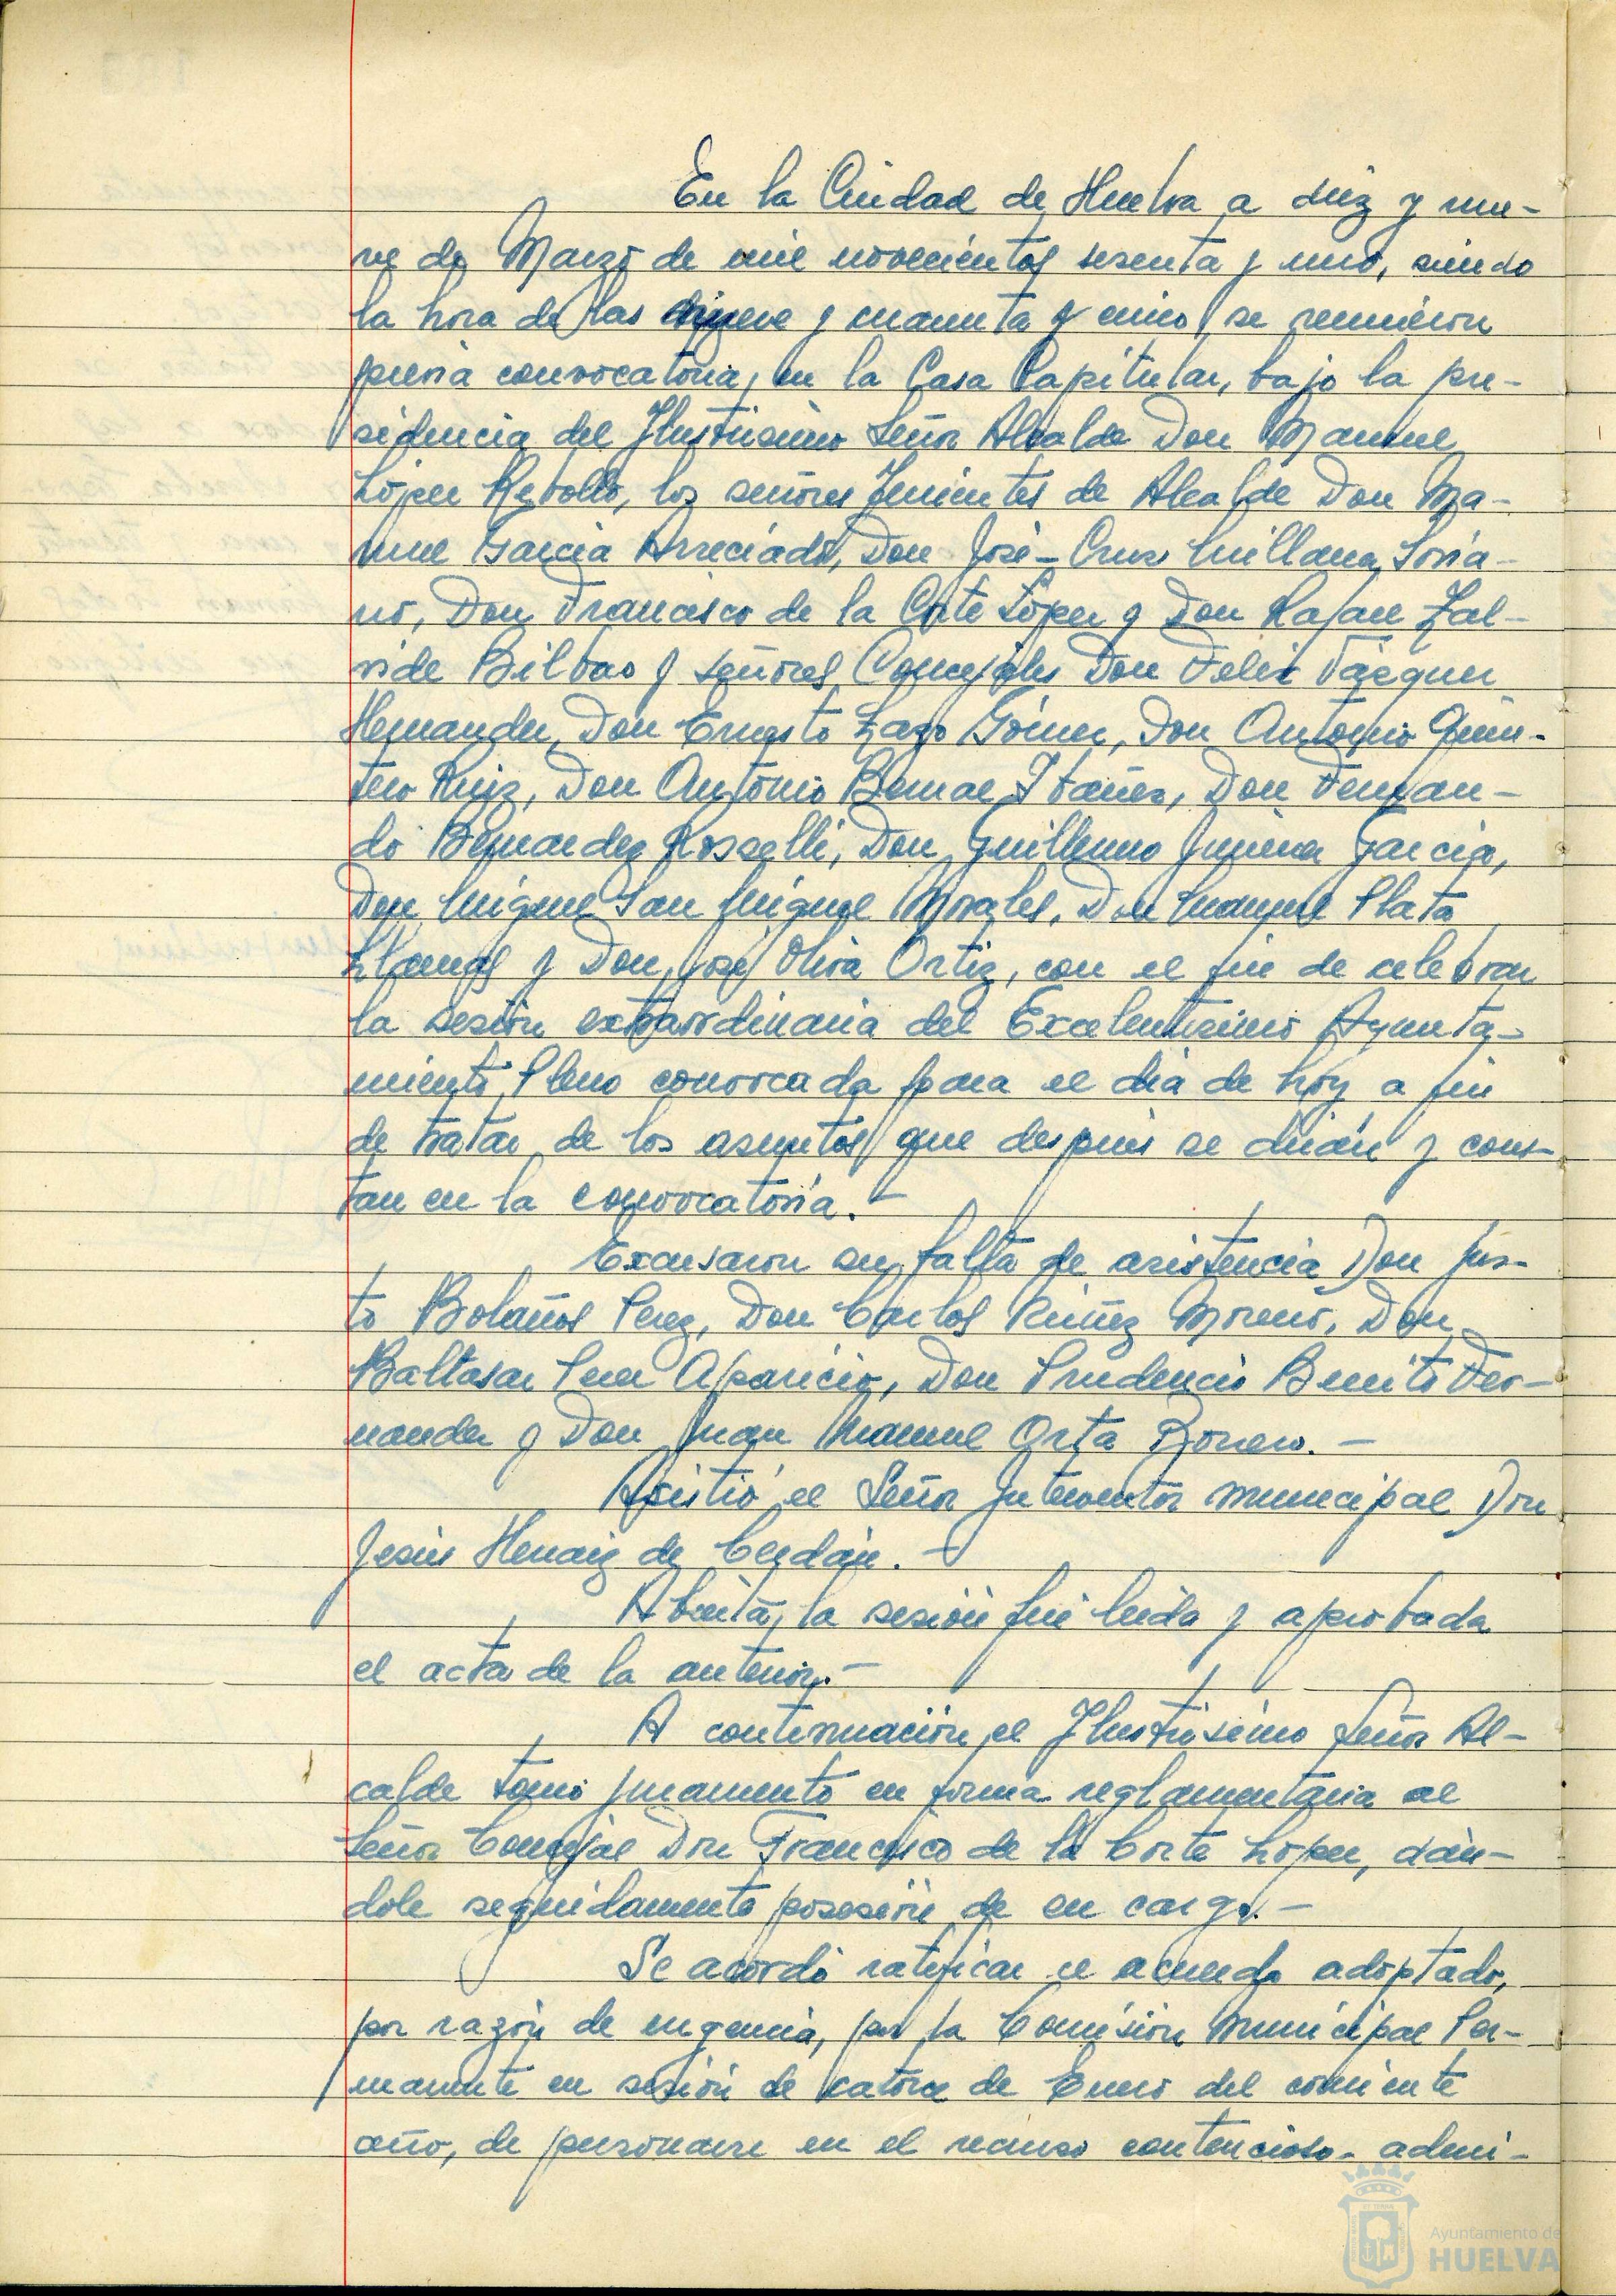 En la Ciudad de Huelva a diez y nue-
ve de Marzo de mil novecientos sesenta y uno, siendo
la hora de las diez y nueve y cuarenta y cinco, se reunieron
previa convocatoria, en la Casa Capitular, bajo la pre-
sidencia del Ilustrisimo Señor Alcalde Don Manuel
López Rebollo, los señores Tenientes de Alcalde Don Ma-
nuel Garcia Arreciado, Don José-Cruz Millana Soria-
no, Don Francisco de la Corte López y Don Rafael Zal-
vide Bilbao y señores Concejales Don Felix Vázquez
Hernandez, Don Ernesto Lazo Gómez, Don Antonio Quin-
tero Ruiz, Don Antonio Bernal Ibañez, Don Fernan-
do Bernardez Rosselli, Don Guillermo Jiménez Garcia,
Don Miguel San Miguel Morales, Don Manuel Plata
Llamas y Don José Oliva Ortiz, con el fin de celebrar
la sesión extraordinaria del Excelentísimo Ayunta-
miento Pleno convocada para el dia de hoy a fin
de tratar de los asuntos que después se dirán y cons-
tan en la convocatoria.-
Excusaron su falta de asistencia Don Jus-
to Bolaños Perez, Don Carlos Núñez Moreno, Don
Baltasar Perez Aparicio, Don Prudencio Benito Fer-
nandez y Don Juan Manuel Orta Romero.-
Asistió el Señor Interventor municipal Don
Jesús Hernaiz de Cerdán.-
Abierta la sesión fué leida y aprobada
el acta de la anterior.-
A continuación el Ilustrisimo Señor Al-
calde tomó juramento en forma reglamentaria al
Señor Concejal Don Francisco de la Corte López, dán-
dole seguidamente posesión de su cargo.-
Se acordó ratificar el acuerdo adoptado,
por razón de urgencia, por la Comisión Municipal Per-
manente en sesión de catorce de Enero del corriente
año, de personarse en el recurso contencioso-admi-
Ayuntamiento de
HUELVA